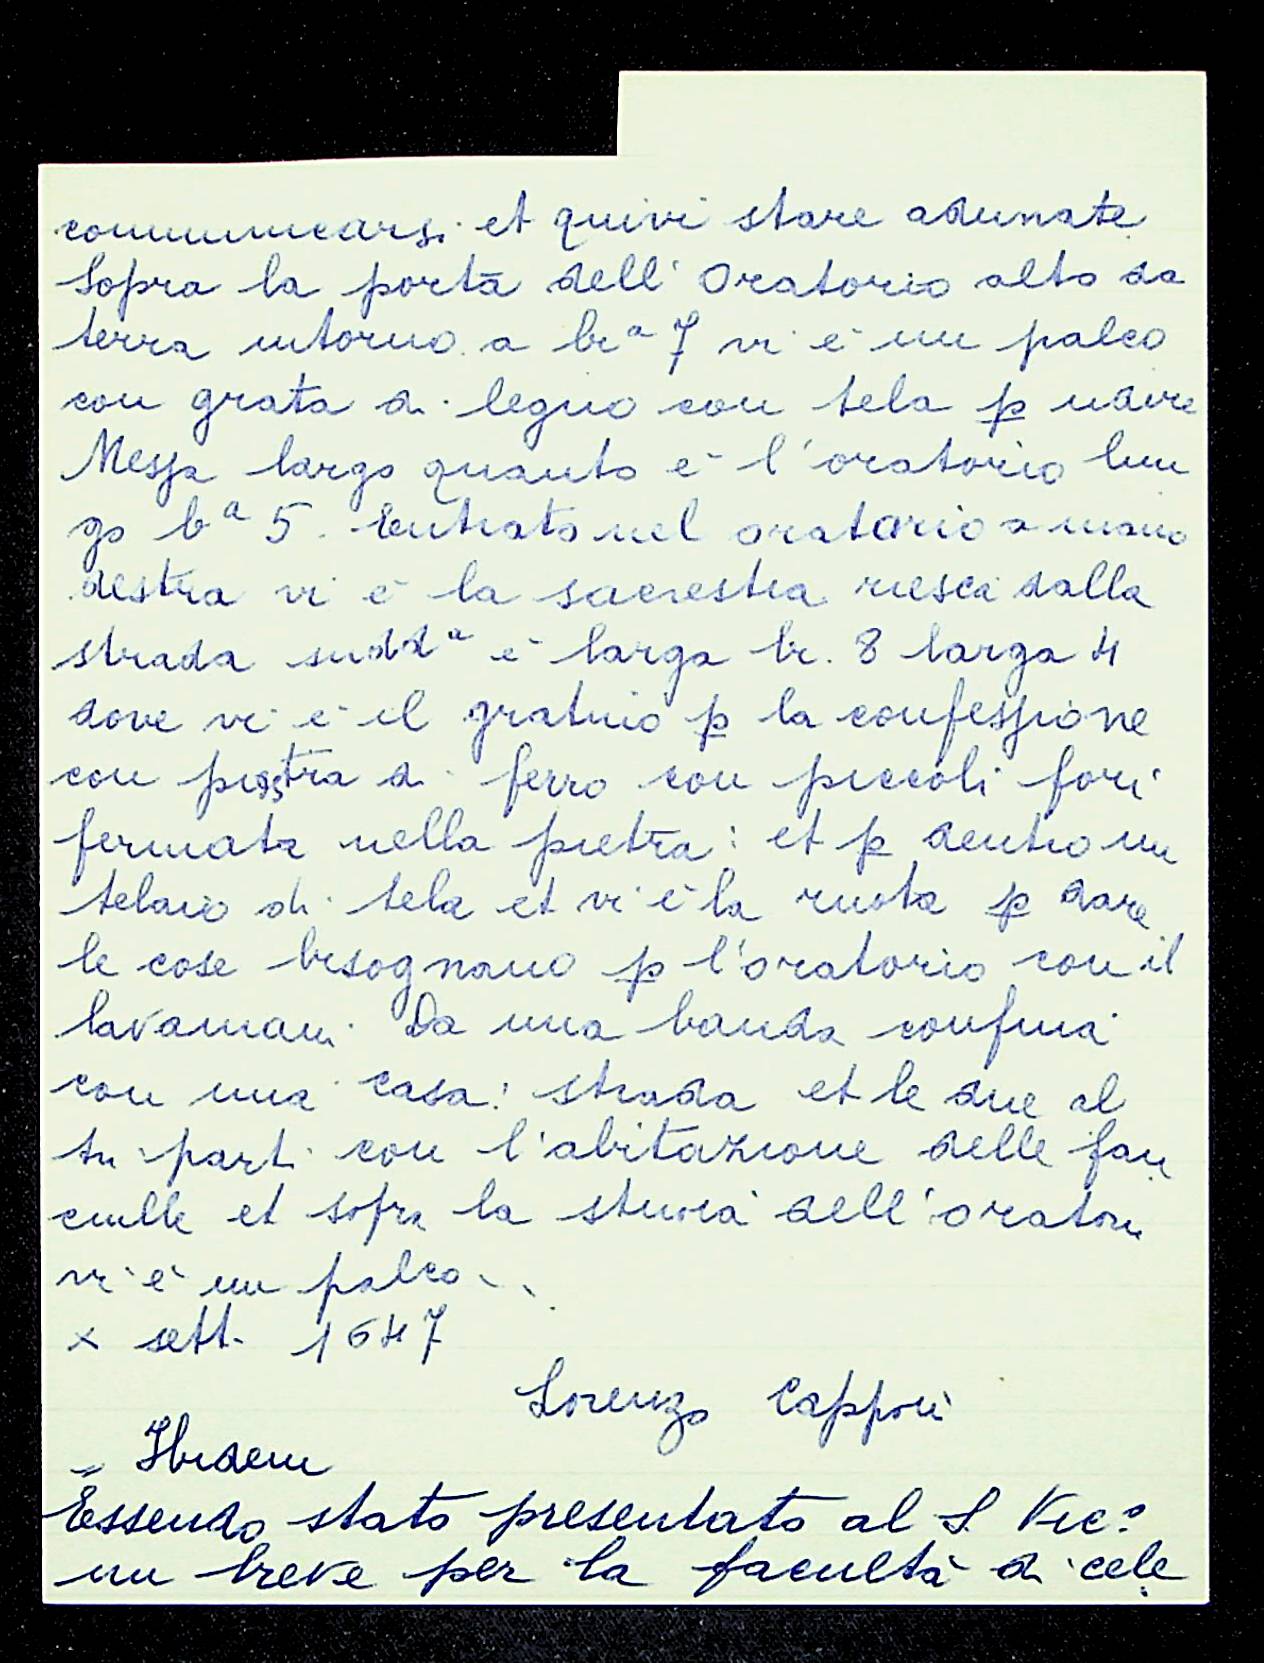 communicarsi et quivi stare adunate
Sopra la porta dell' Oratorio alto da
terra intorno a br.a 7 vi è un palco
con grata di legno con tela p udire
Messa largo quanto è l'oratorio lun
go b.a 5. Entrato nel oratorio a mano
destra vi è la sacrestia riesce dalla
strada sudd.a è larga br. 8 larga 4
dove vi è il gratino p la confessione
con piastra di ferro con piccoli fori
fermata nella pietra: et p dentro un
telaio di tela et vi è la ruota p dare
le cose bisognano p l'oratorio con il
lavamani. Da una banda confina
con una casa: strada et le due al
tri parti con l'abitazione delle fan
ciulle et sopra la stuoia dell'oratori
vi è un palco..
X sett. 1647
Lorenzo Capponi
" Ibidem
Essendo stato presentato al S. Vic.o
un breve per la facultà di cele